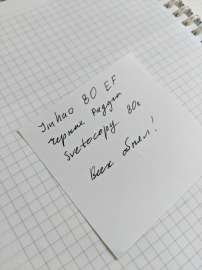 Jinhao 80 EF
Чернила Радуга
Svetocopy 80г
Всех обнял!